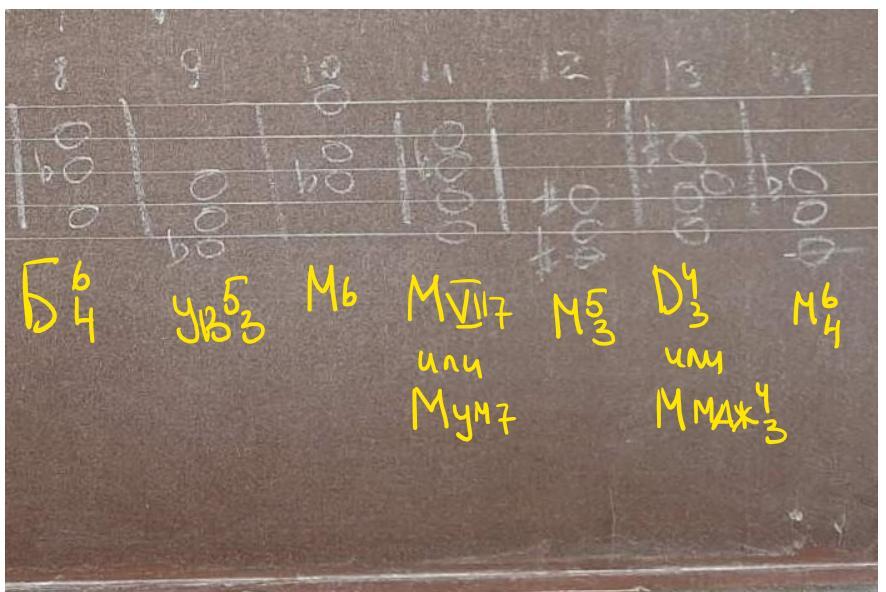 8 9 10 11 12 13 14
Б 6 4
ув 5 3
М6
МVII7
или
Мум7
М 5 3
D 4 3
или
Ммдж 4 3
М 6 4